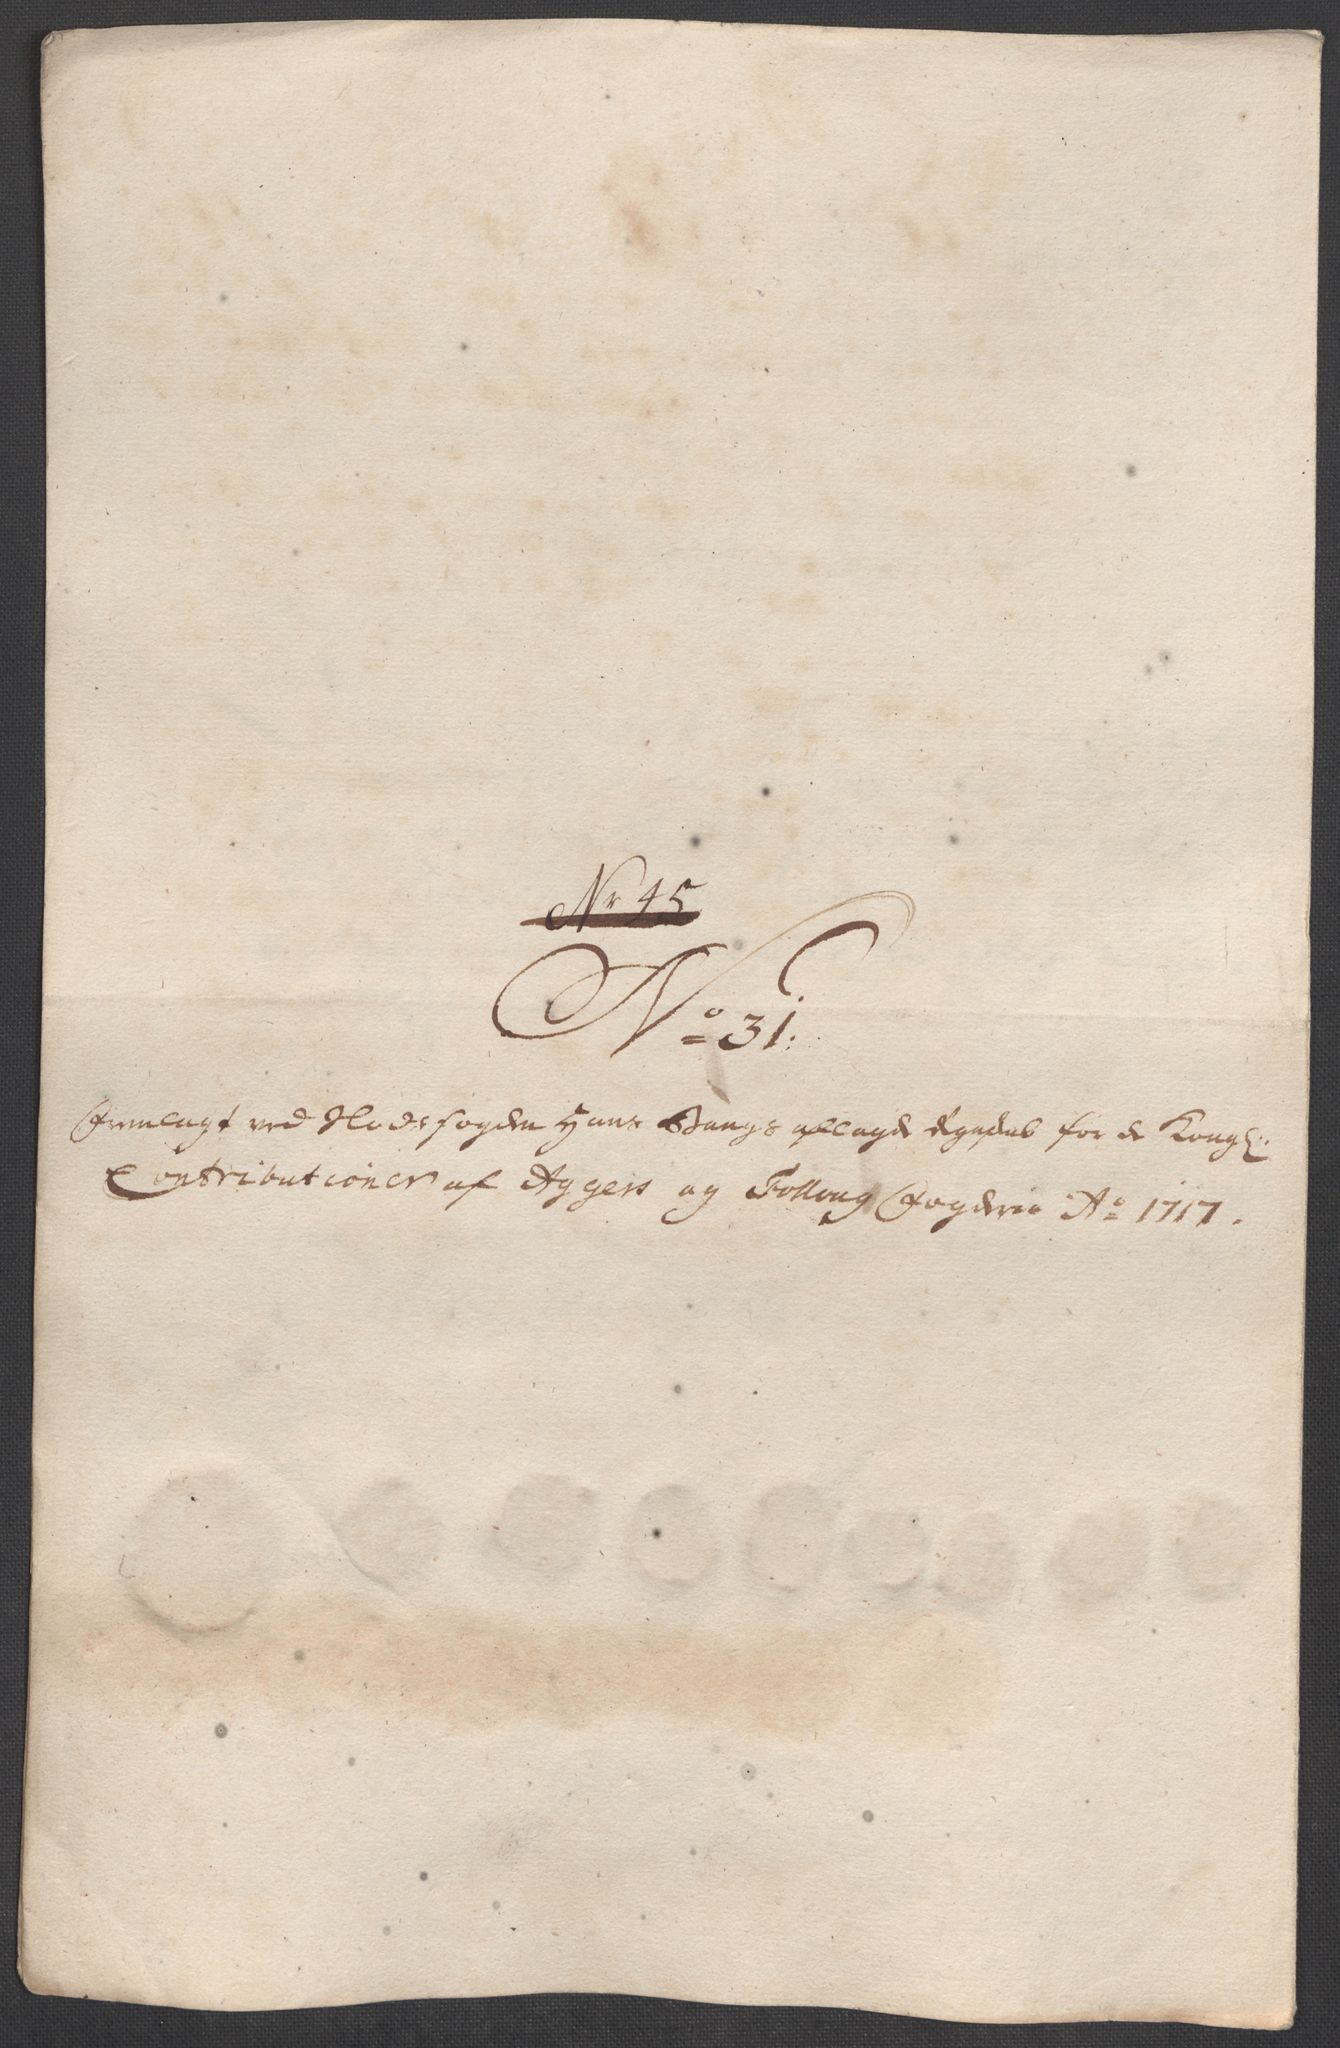 Nr 45
No 31:
Fremlagt ved Slodsfogden Hans Bangs aflagde Regnskab for de Kongl:
Contributioner af Aggers og Folloug Fogderie Ao 1717.